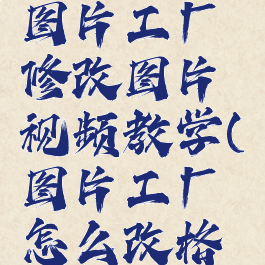 图片工厂
修改图片
视频教学(
图片工厂
怎么改格